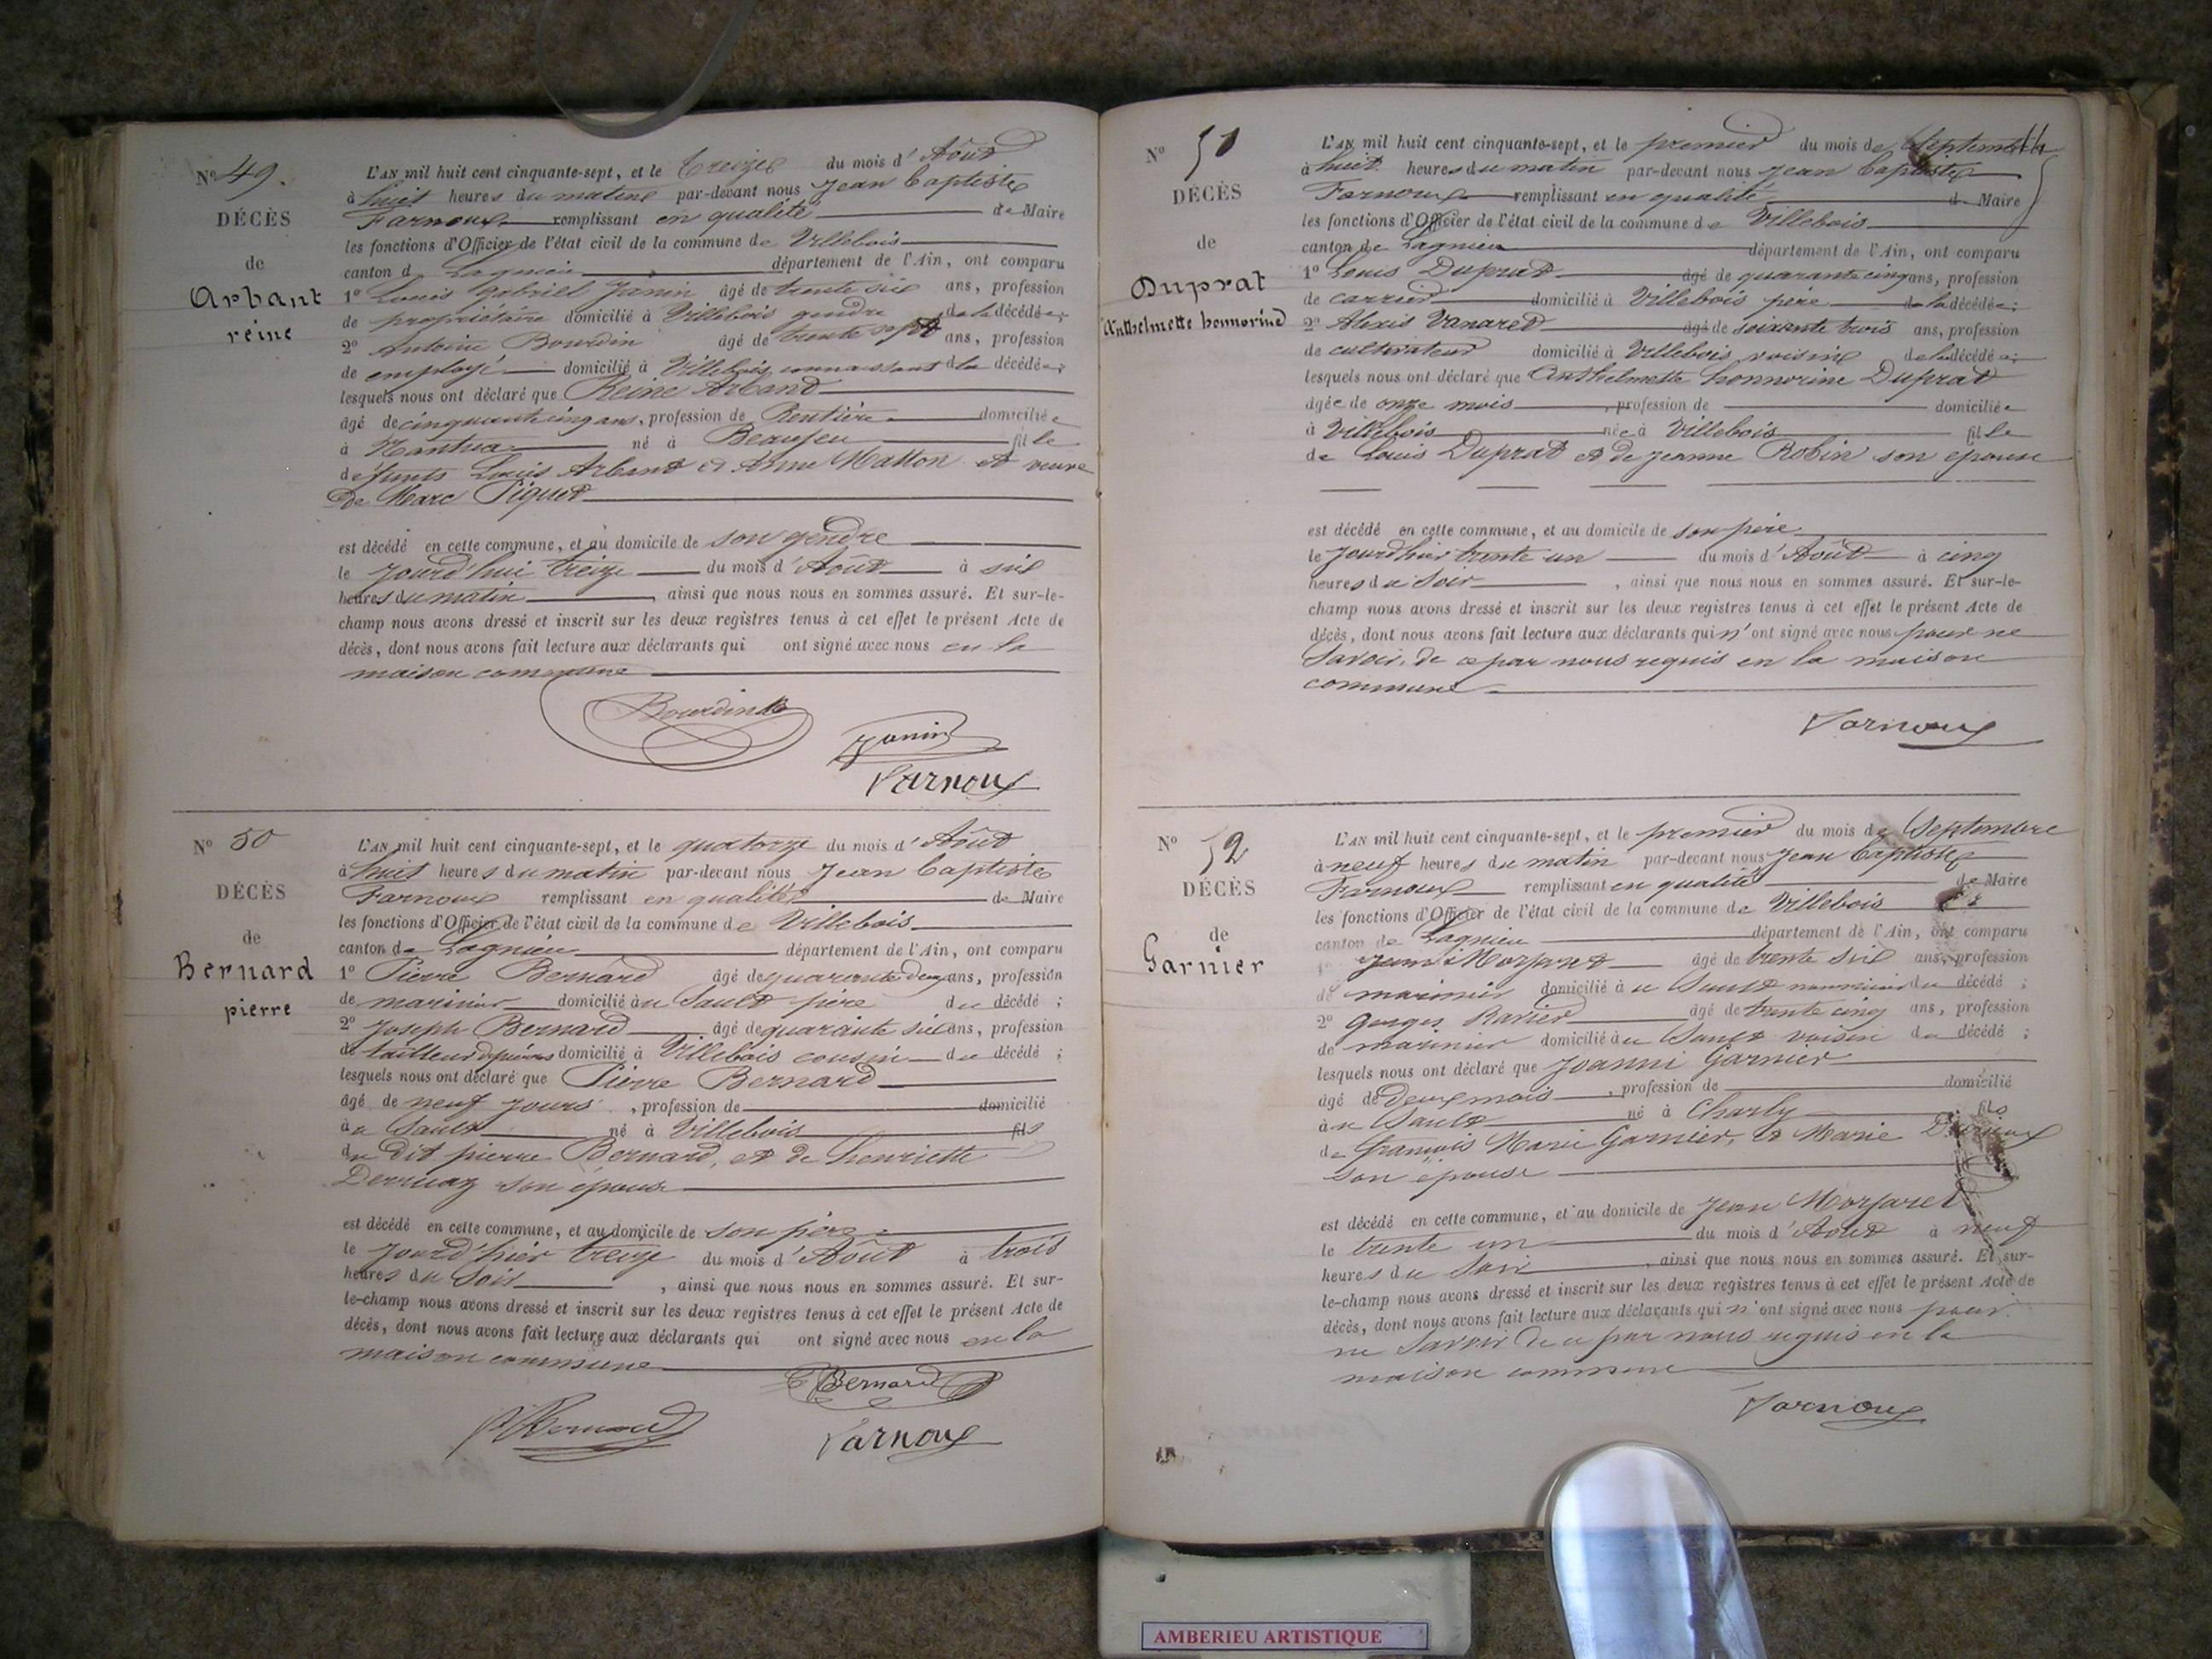 Nº 49.
DÉCÈS
de
Arbant
reine
L'AN mil huit cent cinquante-sept, et le treize du mois d'Août
à huit heures du matin par-devant nous Jean Baptiste
Farnoux remplissant en qualité de Maire
les fonctions d'Officier de l'état civil de la commune de Villebois
canton de Lagnieu département de l'Ain, ont comparu
1º Louis Gabriel Janin âgé de trente six ans, profession
de propriétaire domicilié à Villebois gendre de la décédée;
2º Antoine Bourdin âgé de trente sept ans, profession
de employé domicilié à Villebois connaissant de la décédée;
lesquels nous ont déclaré que Reine Arband
âgé de cinquante cinq ans, profession de Rentière domiciliée
à Nantua né à Beaujeu fille
défunts Louis Arband et Anne Matton et veuve
De Marc Piquet
est décédé en cette commune, et au domicile de son gendre
le jourd'hui treize du mois d'Août à six
heures du matin, ainsi que nous nous en sommes assuré. Et sur-le-
champ nous avons dressé et inscrit sur les deux registres tenus à cet effet le présent Acte de
décès, dont nous avons fait lecture aux déclarants qui ont signé avec nous en la
maison commune
Bourdin
Janin
Farnoux
Nº 50
DÉCÈS
de
Bernard
pierre
L'AN mil huit cent cinquante-sept, et le quatorze du mois d'Août
à huit heures du matin par-devant nous Jean Baptiste
Farnoux remplissant en qualité de Maire
les fonctions d'Officier de l'état civil de la commune de Villebois
canton de Lagnieu département de l'Ain, ont comparu
1º Pierre Bernard âgé de quarante deux ans, profession
de marinier domicilié au Sault père du décédé;
2º Joseph Bernard âgé de quarante six ans, profession
de tailleur de pierres domicilié à Villebois cousin du décédé;
lesquels nous ont déclaré que Pierre Bernard
âgé de neuf jours, profession de domicilié
au Sault né à Villebois fils
du dit pierre Bernard, et de henriette
Derruaz son épouse
est décédé en cette commune, et au domicile de son père
le jourd'hier treize du mois d'Août à trois
heures du Soir, ainsi que nous nous en sommes assuré. Et sur-
le-champ nous avons dressé et inscrit sur les deux registres tenus à cet effet le présent Acte de
décès, dont nous avons fait lecture aux déclarants qui ont signé avec nous en la
maison commune
Bernard
Bernard
Farnoux
Nº 51
DÉCÈS
de
Duprat
Anthelmette honnorine
L'AN mil huit cent cinquante-sept, et le premier du mois de Septembre
à huit heures du matin par-devant nous Jean Baptiste
Farnoux remplissant en qualité de Maire
les fonctions d'Officier de l'état civil de la commune de Villebois
canton de Lagnieu département de l'Ain, ont comparu
1º Louis Duprat âgé de quarante cinq ans, profession
de carrier domicilié à Villebois père de la décédée;
2º Alexis Vanaret âgé de soixante trois ans, profession
de cultivateur domicilié à Villebois voisin de la décédée;
lesquels nous ont déclaré que Anthelmette honnorine Duprat
âgée de onze mois, profession de domiciliée
à Villebois née à Villebois fille
de Louis Duprat et de Jeanne Robin son épouse
est décédé en cette commune, et au domicile de son père
le jourd'hier trente un du mois d'Août à cinq
heures du Soir, ainsi que nous nous en sommes assuré. Et sur-le-
champ nous avons dressé et inscrit sur les deux registres tenus à cet effet le présent Acte de
décès, dont nous avons fait lecture aux déclarants qui n'ont signé avec nous pour ne
Savoir, de ce par nous requis en la maison
commune
Farnoux
Nº 52
DÉCÈS
de
Garnier
L'AN mil huit cent cinquante-sept, et le premier du mois de Septembre
à neuf heures du matin par-devant nous Jean Baptiste
Farnoux remplissant en qualité de Maire
les fonctions d'Officier de l'état civil de la commune de Villebois
canton de Lagnieu département de l'Ain, ont comparu
1º Jean Morjaret âgé de trente six ans, profession
de marinier domicilié au Sault nourricier du décédé;
2º Georges Ravier âgé de trente cinq ans, profession
de marinier domicilié au Sault voisin du décédé;
lesquels nous ont déclaré que Joanni Garnier
âgé de deux mois, profession de domicilié
au Sault né à Charly fils
de François Marie Garnier, et Marie
son épouse
est décédé en cette commune, et au domicile de Jean Morjaret
le trente un du mois d'Août à neuf
heures du Soir, ainsi que nous nous en sommes assuré. Et sur-
le-champ nous avons dressé et inscrit sur les deux registres tenus à cet effet le présent Acte de
décès, dont nous avons fait lecture aux déclarants qui n'ont signé avec nous pour
ne Savoir de ce par nous requis en la
maison commune
Farnoux
AMBERIEU ARTISTIQUE